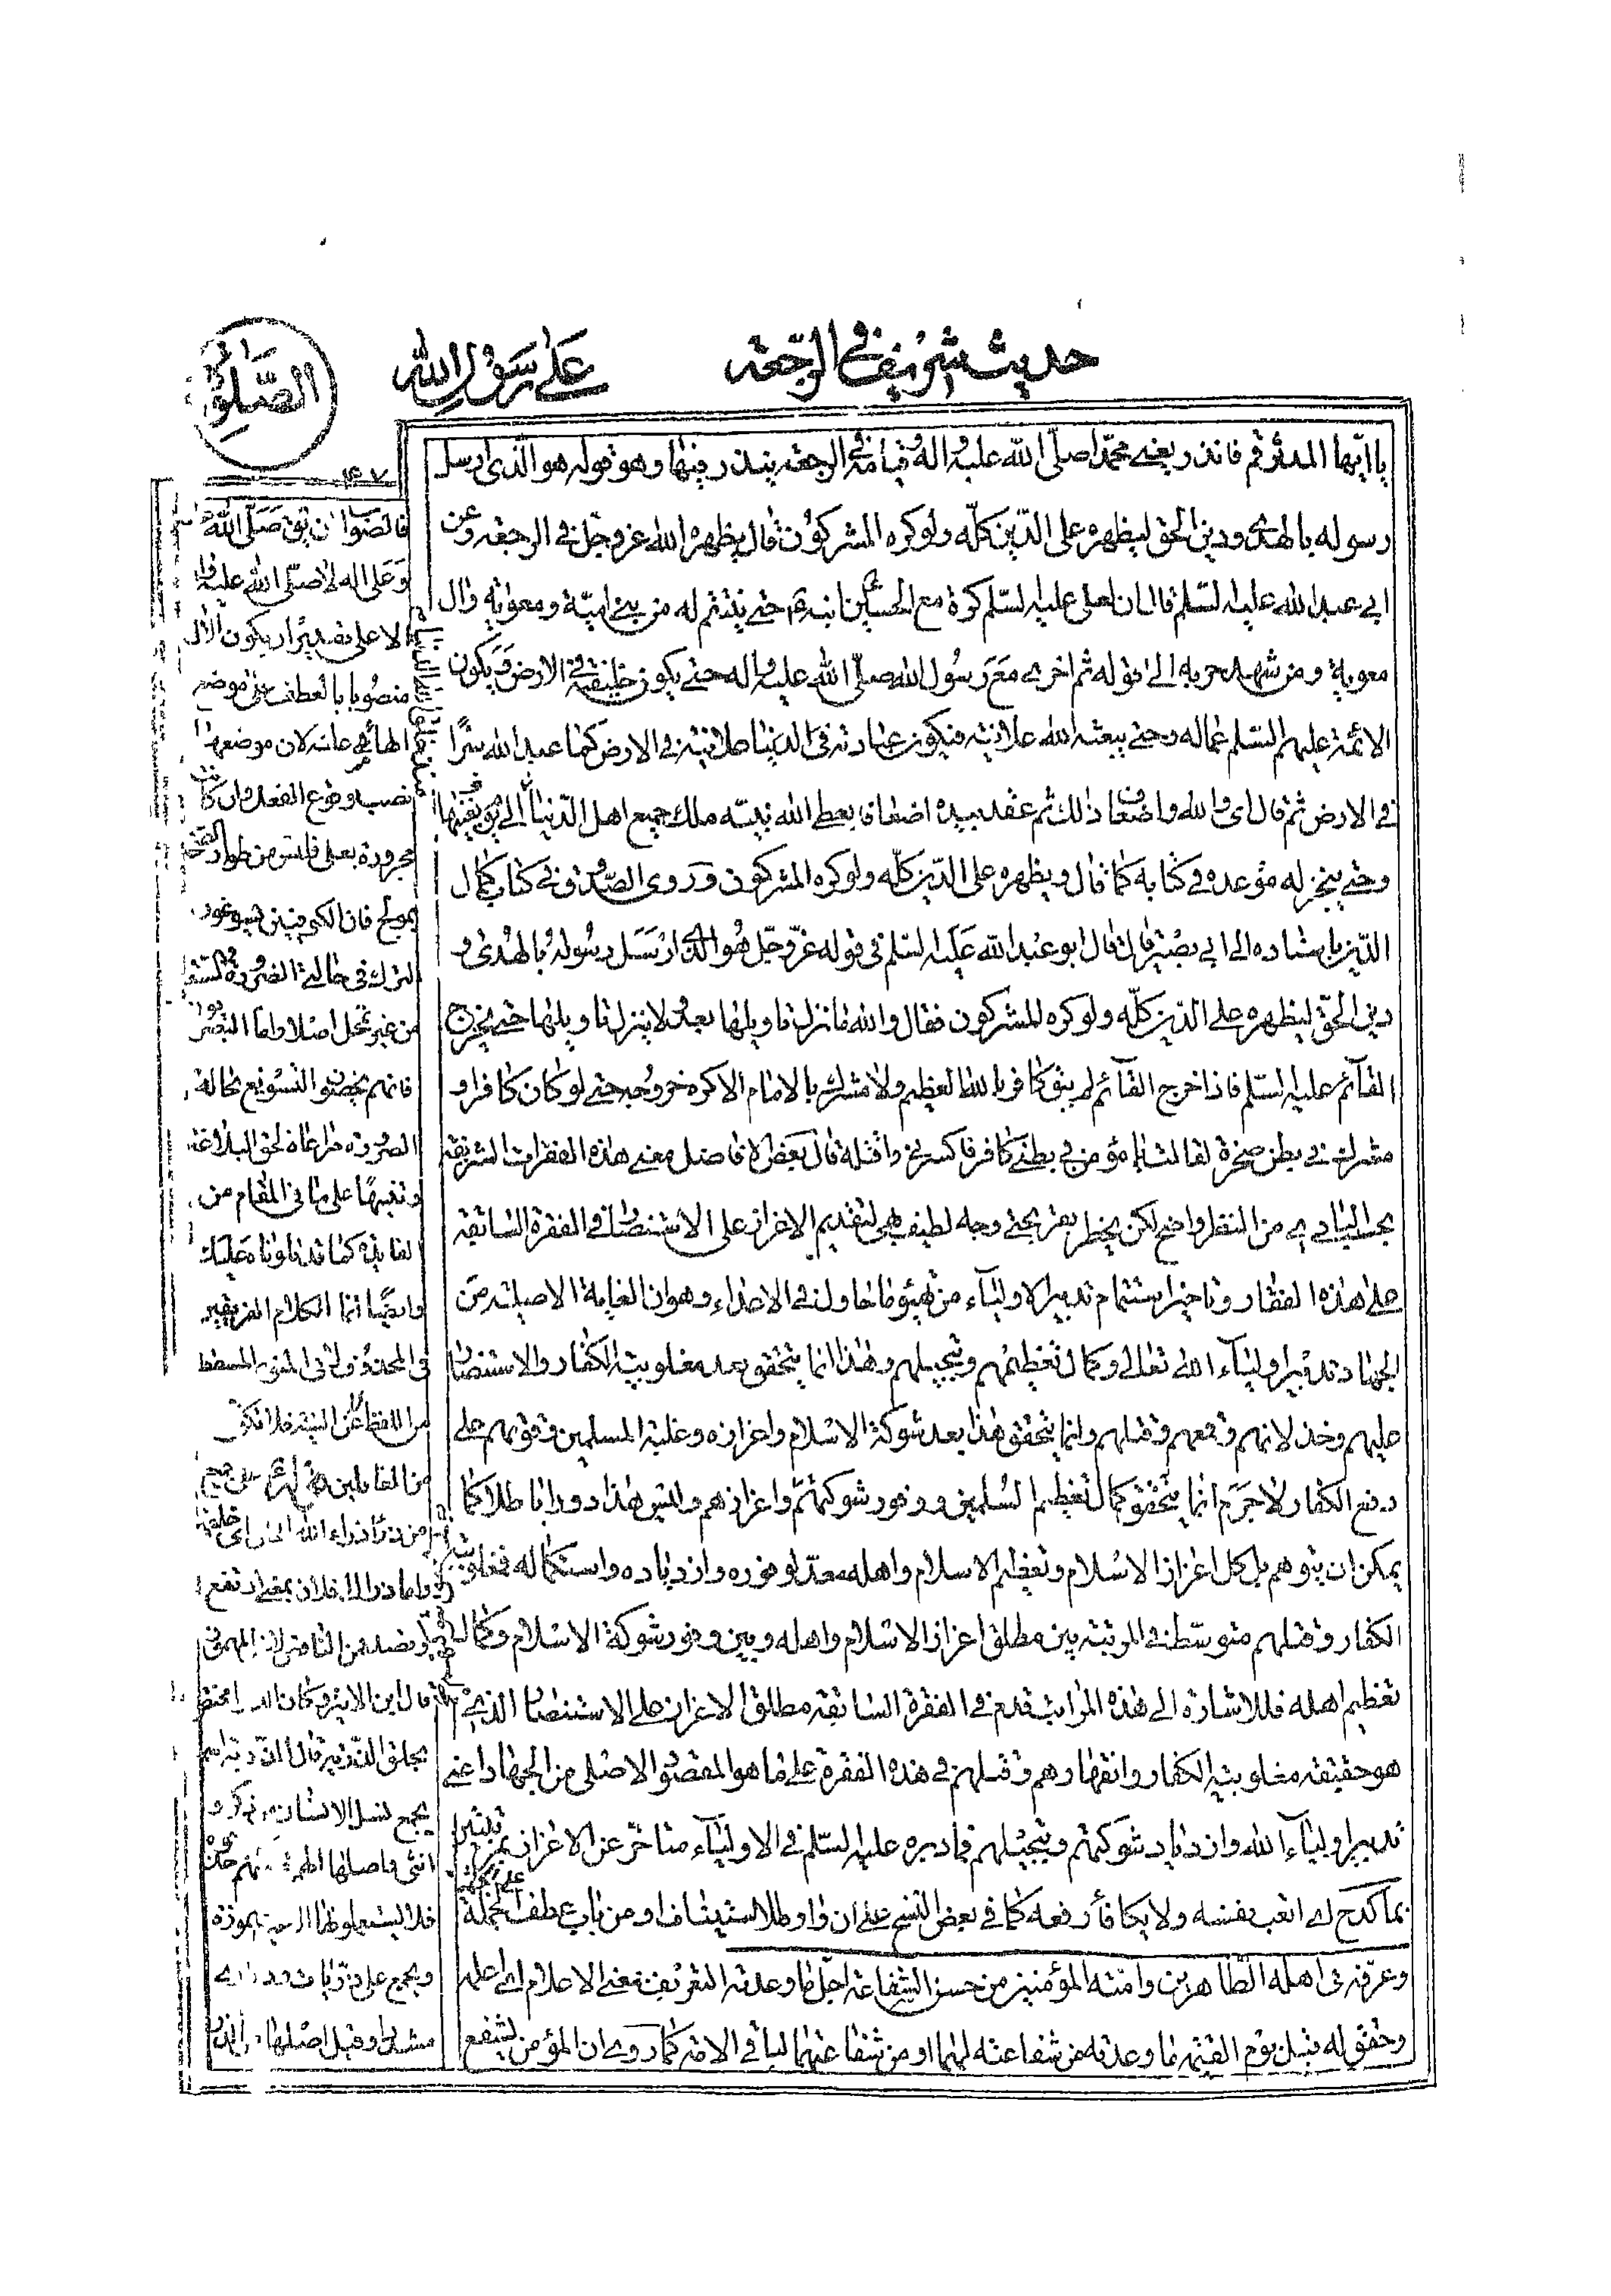 حديث شريف في الرجعة
على رسول الله
الصلوة
١٤٧
يا ايها المدثر قم فانذر يعني محمدا صلى الله عليه واله قيامه في الرجعة ينذر فيها وهو قوله هو الذي ارسل
رسوله بالهدى ودين الحق ليظهره على الدين كله ولو كره المشركون قال يظهره الله عز وجل في الرجعة وعن
ابي عبد الله عليه السلم قال ان لعلي عليه السلم كرة مع الحسين ابنه حتى ينتقم له من بني امية ومعوية وال
معوية ومن شهد حربه الى قوله ثم اخرى مع رسول الله صلى الله عليه واله حتى يكون خليفة في الارض ويكون
الائمة عليهم السلم عماله وحتى يبعثه الله علانية فيكون عبادته في الدنيا علانية في الارض كما عبد الله سرا
في الارض ثم قال اي والله واضعاف ذلك ثم عقد بيده اضعافا يعطي الله نبيه ملك جميع اهل الدنيا الى يوم يفنيها
وحتى ينجز له موعده في كتابه كما قال ويظهره على الدين كله ولو كره المشركون وروى الصدوق في كتاب كمال
الدين باسناده الى ابي بصير قال قال ابو عبد الله عليه السلم في قوله عز وجل هو الذي ارسل رسوله بالهدى و
دين الحق ليظهره على الدين كله ولو كره المشركون فقال والله ما نزل تاويلها بعد ولا ينزل تاويلها حتى يخرج
القائم عليه السلم فاذا خرج القائم لم يبق كافر بالله العظيم ولا مشرك بالامام الا كره خروجه حتى لو كان كافر او
مشرك في بطن صخرة لقالت يا مؤمن في بطني كافر فاكسرني واقتله قال بعض الافاضل معنى هذه الفقرات الشريفة
بحسب البادي من النظر واضح لكن يخطر بقريحتي وجه لطيف هي لتقديم الاعزاز على الاستنصار في الفقرة السابقة
على هذه الفقار وتاخير استتمام تدبير الاولياء من تهيئو ما حاول في الاعداء وهو ان الغاية الاصلية من
الجهاد تدبير اولياء الله تعالى وكمال تعظيمهم وتبجيلهم وهذا انما يتحقق بعد مغلوبية الكفار والاستنصار
عليهم وخذلانهم وقمعهم وقتلهم وانما يتحقق هذا بعد شوكة الاسلام واعزازه وغلبة المسلمين وقوتهم على
دفع الكفار لا جرم انما يتحقق كمال تعظيم المسلمين ووفور شوكتهم واعزازهم وليس هذا دورا باطلا كما
يمكن ان يتوهم بل كل اعزاز الاسلام وتعظيم الاسلام واهله معد لوفوره وازدياده واستكماله فمغلوبية
الكفار وقتلهم متوسط في المرتبة بين مطلق اعزاز الاسلام واهله وبين وفور شوكة الاسلام وكمال
تعظيم اهله فللاشارة الى هذه المراتب قدم في الفقرة السابقة مطلق الاعزاز على الاستنصار الذي
هو حقيقة مغلوبية الكفار وانقهارهم وقتلهم في هذه الفقرة على ما هو المقصود الاصلي من الجهاد اعني
تدبير اولياء الله وازدياد شوكتهم وتبجيلهم فما دبره عليه السلم في الاولياء متاخر عن الاعزاز
بما كدح اي اتعب نفسه ولا يكافأ رفعه كما في بعض النسخ على ان واوه للاستيناف او من باب عطف الجملة
وعرفه في اهله الطاهرين وامته المؤمنين من حسن الشفاعة اجل ما وعدته التعريف بمعنى الاعلام اي اعلمه
وحقق له قبل يوم القيمة ما وعدته من شفاعته لهما او من شفاعتهما لباقي الامة كما روي ان المؤمن ليشفع
فالصواب ان يق صلى الله عليه
وعلى اله لا صلى الله عليه وا
الا على تقدير ان يكون الال
منصوبا بالعطف على موضع
الهاء في عليه لان موضعها
نصب بوقوع الفعل وان كانت
مجرورة بعلى فليس من
فان الكوفيين يسوغون
الترك في حالتي الضرورة والسعة
من غير تمحل اصلا واما البصريون
فانهم يخصوا التسويغ بحالة
الضرورة مراعاة لحق البلاغة
وتنبيها على ما في المقام من
الفايدة كما قد تلوناه عليك
وايضا انما الكلام
في المحذوف لا في المنوي المسقط
من اللفظ عن النية فلا تكونن
من الغافلين
من ذرأ ذراء الله الخلق اي خلقهم
قال ابن الاثير وكان
بخلق الذرية قال الذرية اسم
يجمع نسل الانسان من ذكر و
انثى واصلها الهمز
فلا يستعملونها الا غير مهموزة
ويجمع على ذريات وذراري
مشددا وقيل اصلها